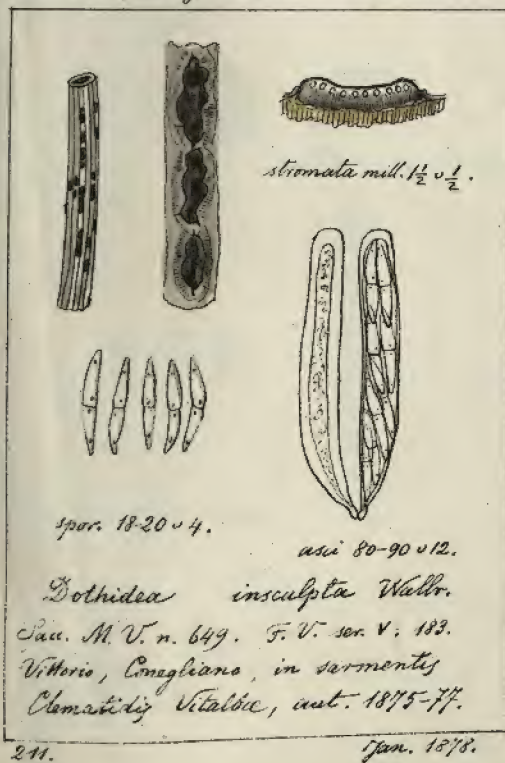 stromata mill. 1½ ᴗ ½.
spor. 18-20 ᴗ 4.
asci 80-90 ᴗ 12.
Dothidea insculpta Wallr.
Sacc. M. V. n. 649. F. V. ser. V: 183.
Vittorio, Conegliano, in sarmentis
Clematidis Vitalbæ, aut. 1875-77.
211. Jan. 1878.